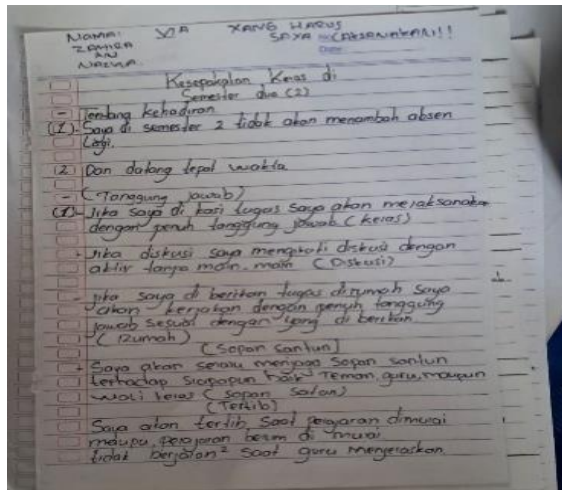 NAMA: XIA YANG HARUS
ZAHIRA SAYA LAKSANAKAN!!
AN
NAZWA.
Kesepakatan Keras di
Semester dua (2)
- Tentang kehadiran
(1). Saya di semester 2 tidak akan menambah absen
Lagi.
(2) Dan datang tepat waktu
- (Tanggung jawab)
(1)- Jika saya di kasi tugas saya akan meraksanakan
dengan penuh tanggung jawab (keras)
- Jika diskusi saya mengikuti diskusi dengan
aktif tanpa main. main (Diskusi)
- jika saya di berikan tugas dirumah saya
akan kerjakan dengan penuh tanggung
jawab sesuai dengan yang di berikan
(Rumah)
(Sopan Santun)
- Saya akan seraru menjaga sopan santun
terhadap siapapun baik Teman, guru, maupun
wali keras (sopan satun)
(Tertib)
Saya akan tertib saat perajaran dimurai
maupu, perajaran berum di murai
tidak berjalan² saat guru menjeraskan.